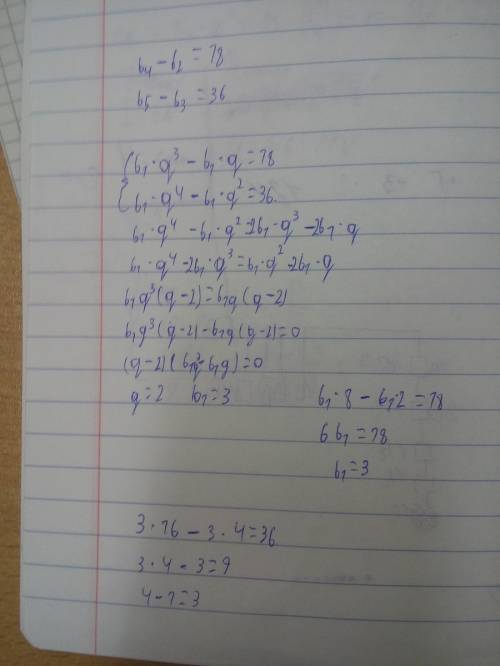 b₄ - b₂ = 18
b₅ - b₃ = 36
{ b₁ · q³ - b₁ · q = 18
b₁ · q⁴ - b₁ · q² = 36
b₁ · q⁴ - b₁ · q² = 2b₁ · q³ - 2b₁ · q
b₁ · q⁴ - 2b₁ · q³ = b₁ · q² - 2b₁ · q
b₁q³(q-2) = b₁q(q-2)
b₁q³(q-2) - b₁q(q-2) = 0
(q-2)(b₁q³ - b₁q) = 0
q = 2 b₁ = 3
b₁ · 8 - b₁ · 2 = 18
6b₁ = 18
b₁ = 3
3 · 16 - 3 · 4 = 36
3 · 4 - 3 = 9
4 - 1 = 3